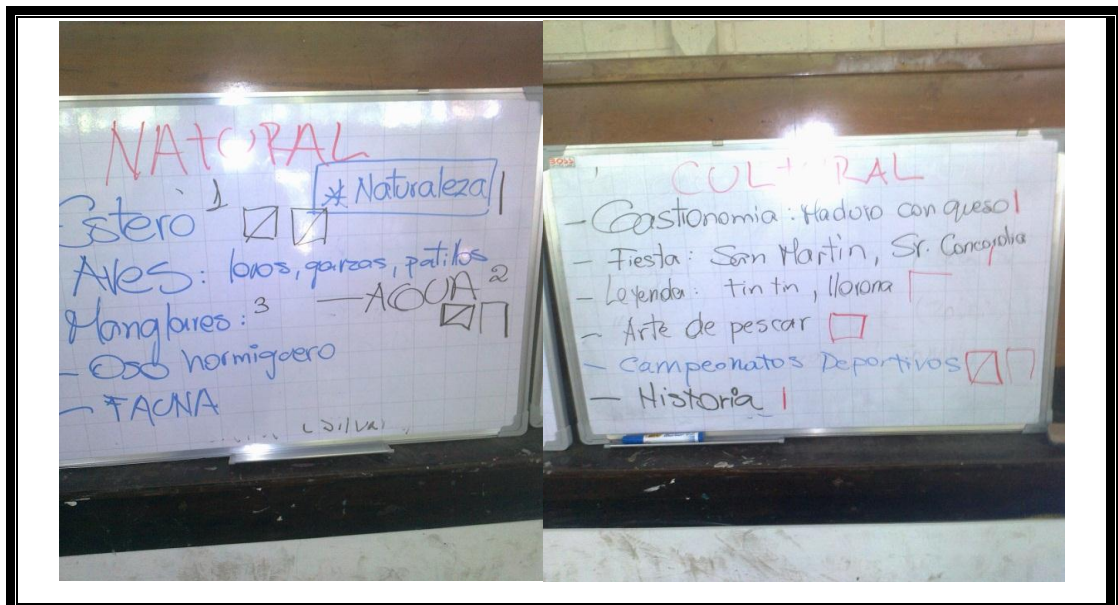 NATURAL
* Naturaleza
Estero 1
Aves: loros, garzas, patillos
— AGUA 2
Manglares: 3
- Oso hormiguero
- FAUNA
CULTURAL
- Gastronomia: Maduro con queso
- Fiesta: San Martin, Sr.
- Leyenda: tin tin, llorona
- Arte de pescar
- Campeonatos Deportivos
- Historia